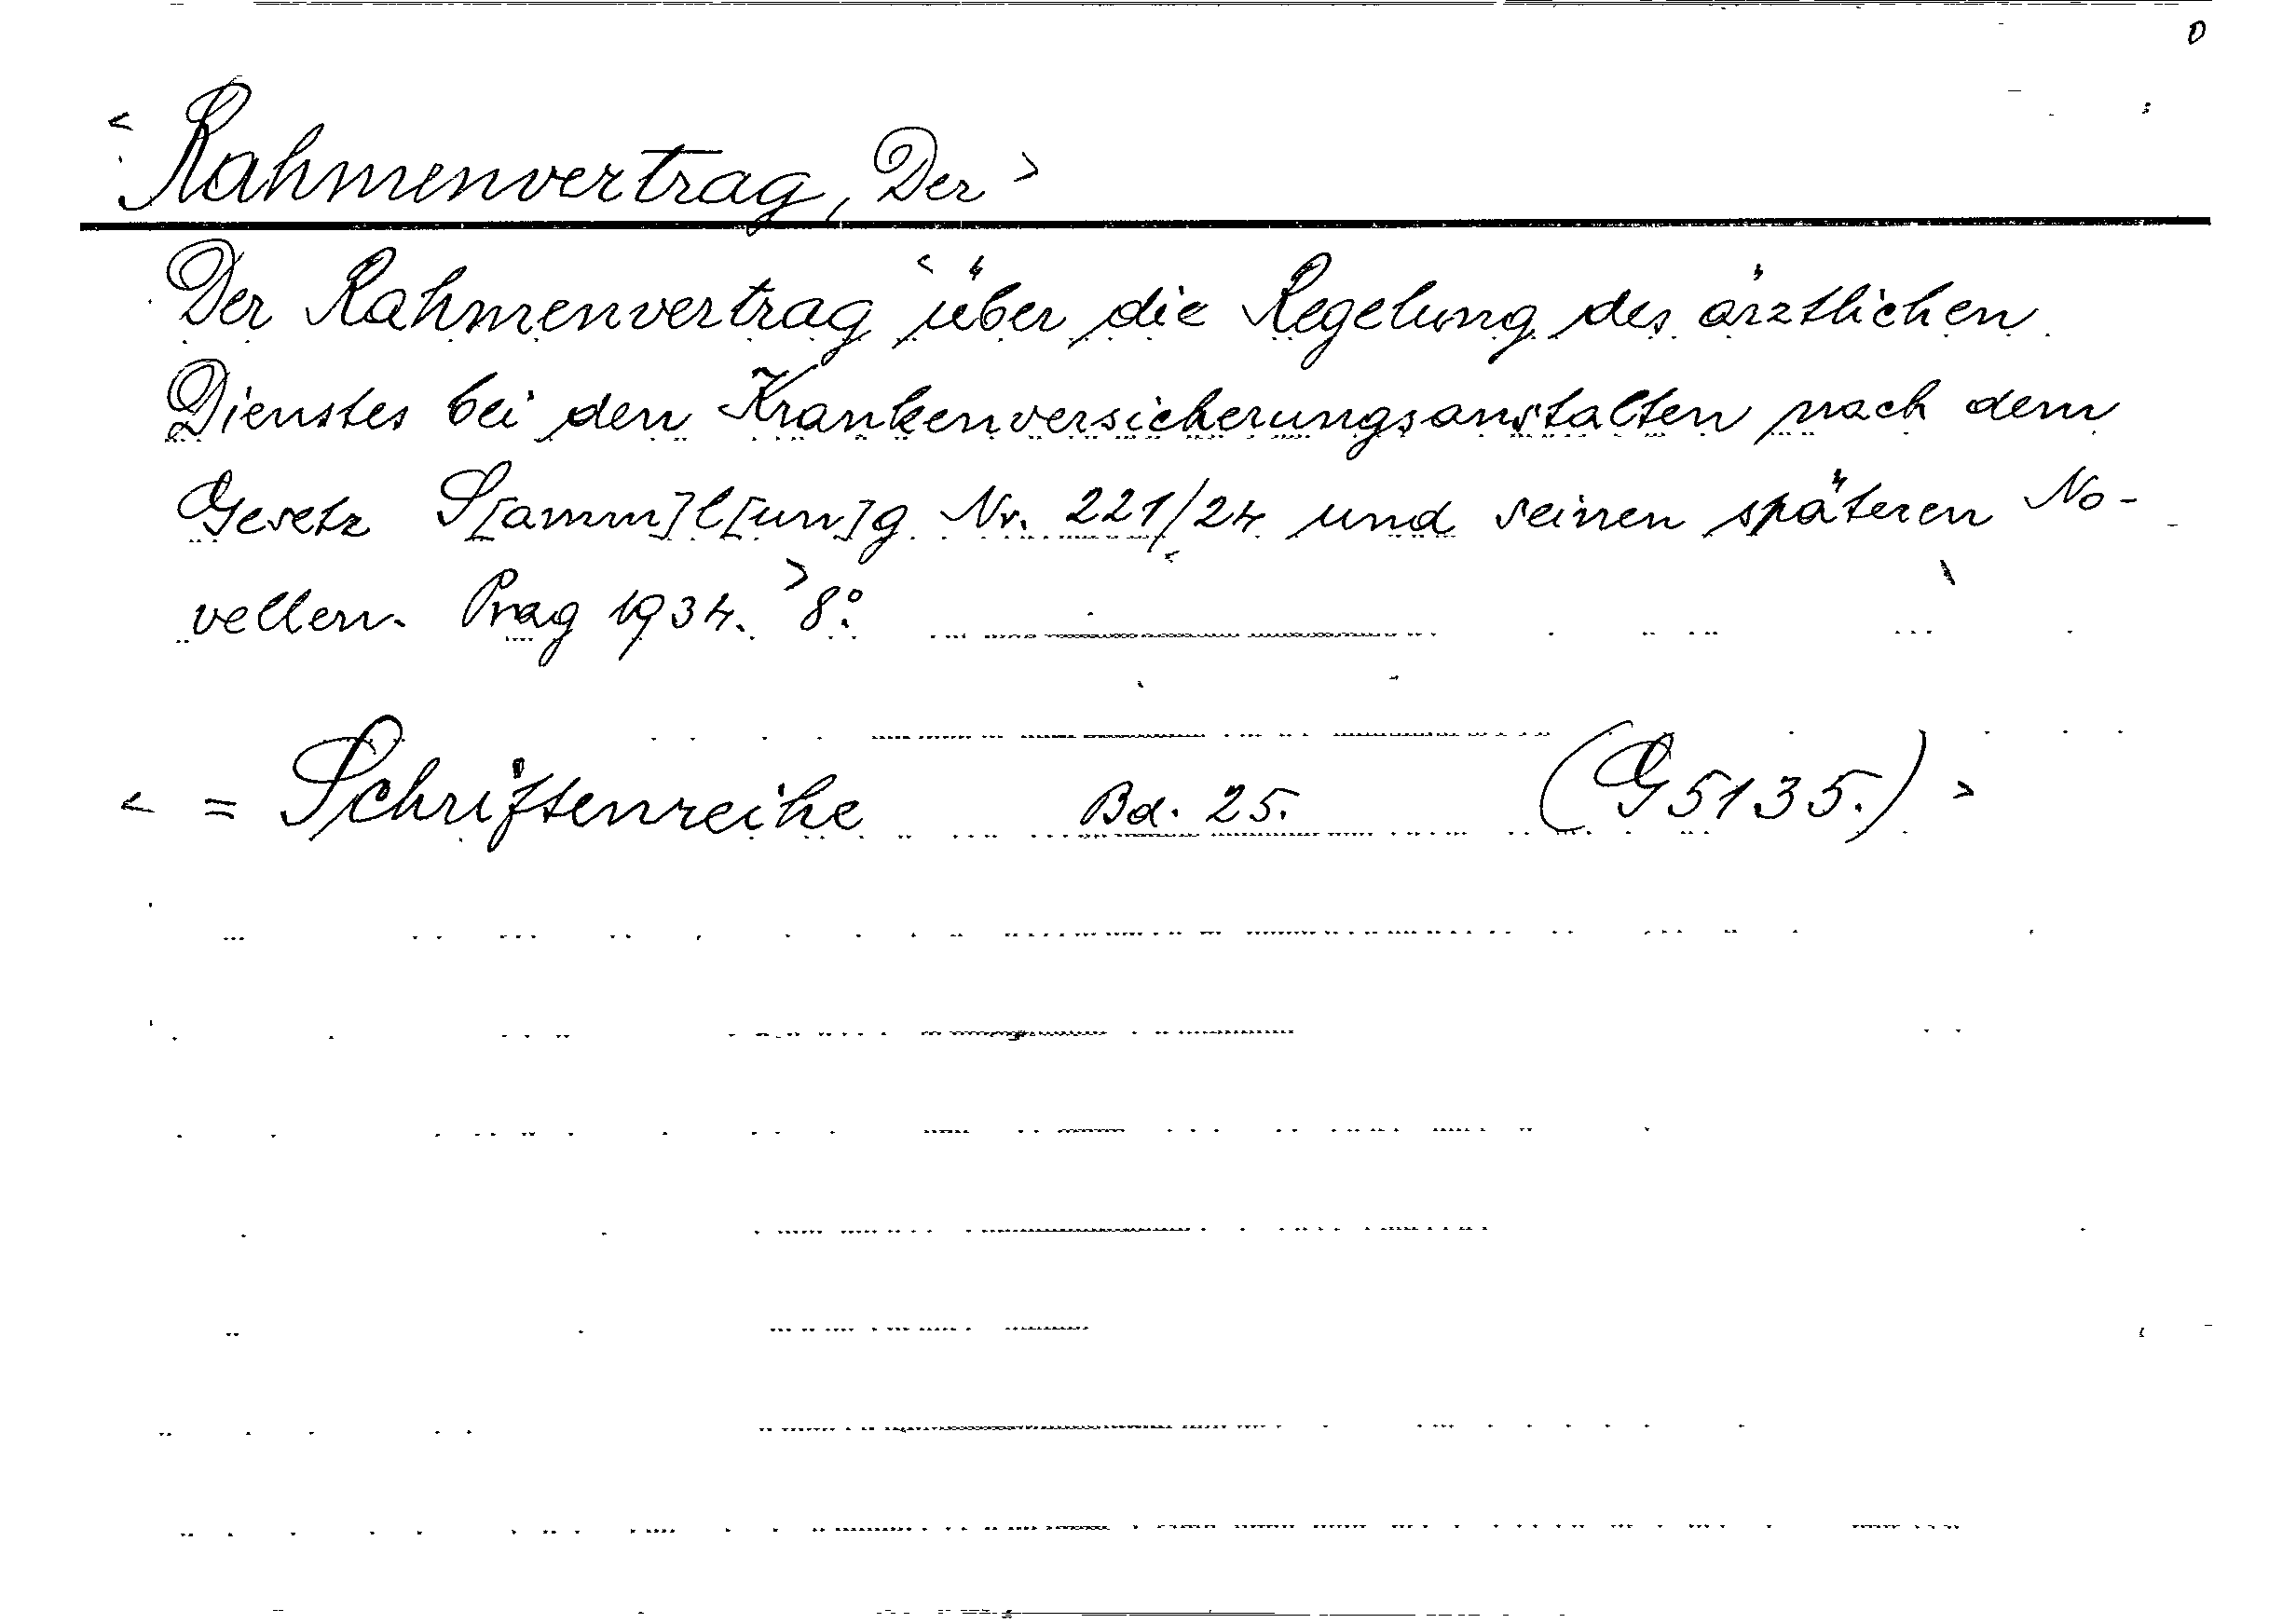 < Rahmenvertrag, Der >
Der Rahmenvertrag < über die Regelung des ärztlichen
Dienstes bei den Krankenversicherungsanstalten nach dem
Gesetz S[amm]l[un]g Nr. 221/24 und seinen späteren No-
vellen. Prag 1934. > 8°.
< = Schriftenreihe Bd. 25. (G 5135.) >